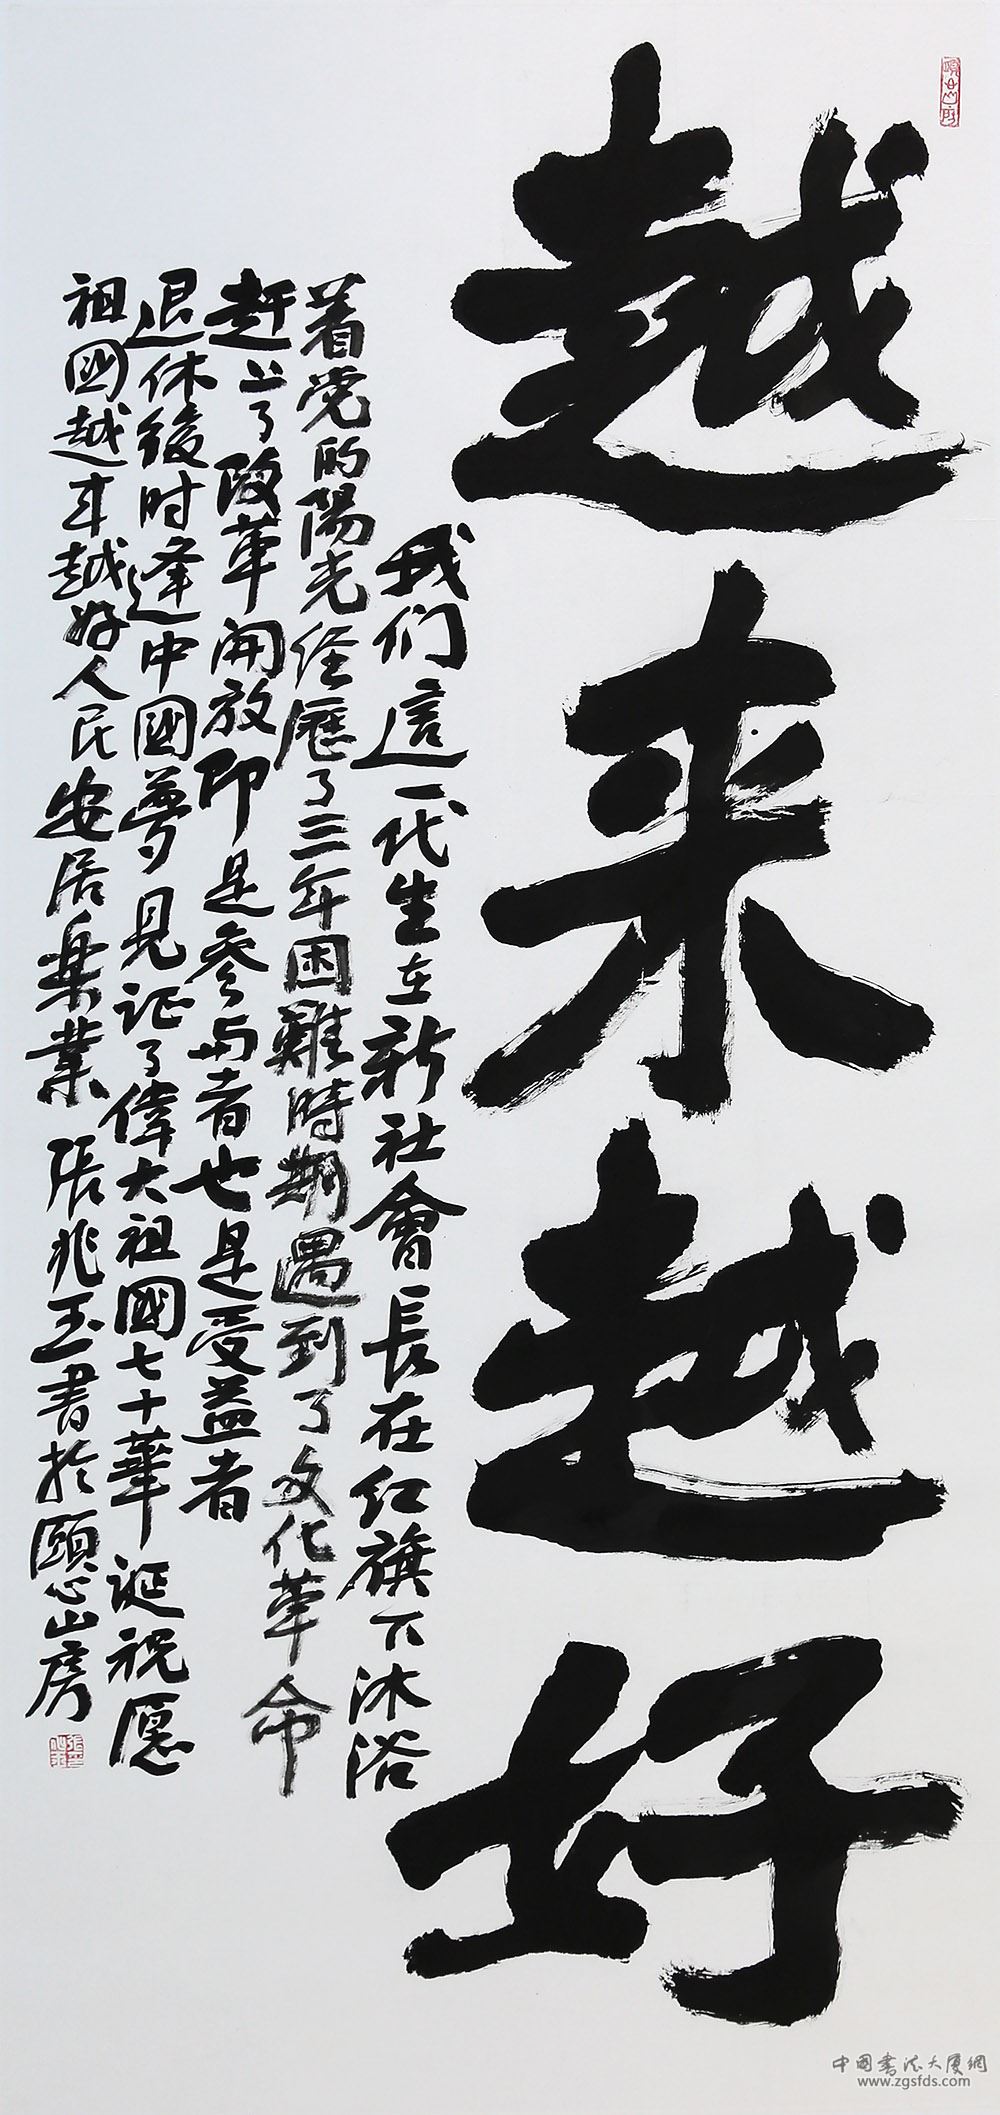 越来越好
我们這一代生在新社會長在红旗下沐浴
着党的陽光经歷了三年困難時期遇到了文化革命
赶上了改革開放即是參与者也是受益者
退休後时逢中國夢见证了偉大祖國七十華诞祝愿
祖國越来越好人民安居樂業 張兆玉書於頤心山房
中国書法大厦網
www.zgsfds.com